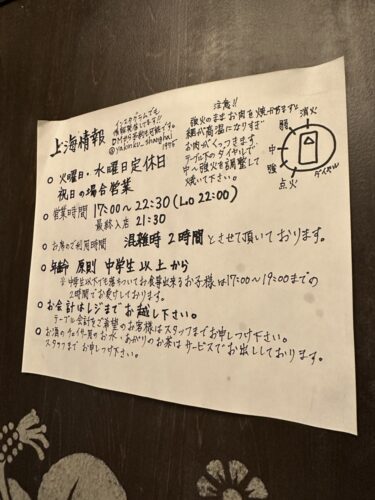 上海情報
インスタグラムでも
情報発信してます!!
DMから予約も可能です。
@yakiniku_shanghai
1995
注意!!
強火のままお肉を焼かれますと
網が高温になりすぎ
お肉がくっつきます。
テーブル下のダイヤルで
中〜強火を調整して
焼いて下さい。
消火
弱
中
強
点火
ダイヤル
○ 火曜日・水曜日定休日
祝日の場合営業
○ 営業時間 17:00〜22:30(Lo 22:00)
最終入店 21:30
○ お席のご利用時間 混雑時 2時間とさせて頂いております。
○ 年齢 原則 中学生以上から
※中学生以下でも落ちついてお食事出来るお子様は17:00〜19:00までの
2時間でお受けしております。
○ お会計はレジまでお越し下さい。
テーブル会計をご希望のお客様はスタッフまでお申しつけ下さい。
○ お酒のチェイサー用のお水・あがりのお茶はサービスでお出ししております。
スタッフまでお申しつけ下さい。